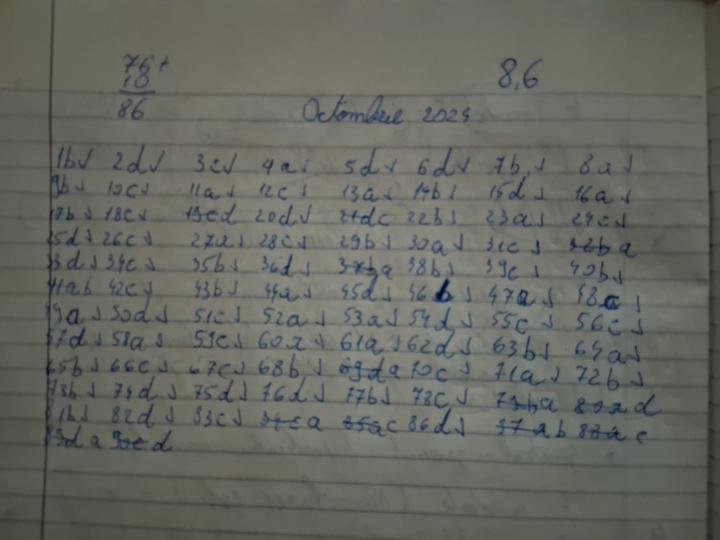 76+ 8,6
10
86
Octombrie 2024
1b✓ 2d✓ 3c✓ 4a✓ 5d✓ 6d✓ 7b✓ 8a✓
9b✓ 10c✓ 11a✓ 12c✓ 13a✓ 14b✓ 15d✓ 16a✓
17b✓ 18c✓ 19c d 20d✓ 21d c 22b✓ 23a✓ 24c✓
25d✓ 26c✓ 27a✓ 28c✓ 29b✓ 30a✓ 31c✓ 32b a
33d✓ 34c✓ 35b✓ 36d✓ 37b a 38b✓ 39c✓ 40b✓
41a b 42c✓ 43b✓ 44a✓ 45d✓ 46b✓ 47a✓ 48c✓
49a✓ 50d✓ 51c✓ 52a✓ 53a✓ 54d✓ 55c✓ 56c✓
57d✓ 58a✓ 59c✓ 60a✓ 61a✓ 62d✓ 63b✓ 64a✓
65b✓ 66c✓ 67c✓ 68b✓ 69d a 70c✓ 71a✓ 72b✓
73b✓ 74d✓ 75d✓ 76d✓ 77b✓ 78c✓ 79b a 80a d
81b✓ 82d✓ 83c✓ 84c a 85a c 86d✓ 87a b 88a c
89d a 90c d